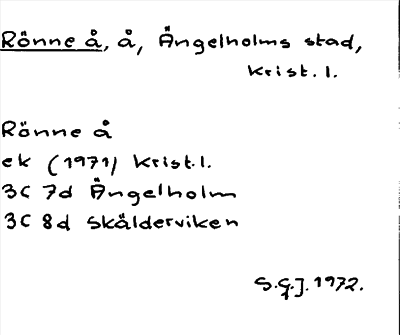 Rönne å, å, Ängelholms stad,
Krist. l.
Rönne å
ek (1971) Krist. l.
3C 7d Ängelholm
3C 8d Skälderviken
S.G.J. 1972.